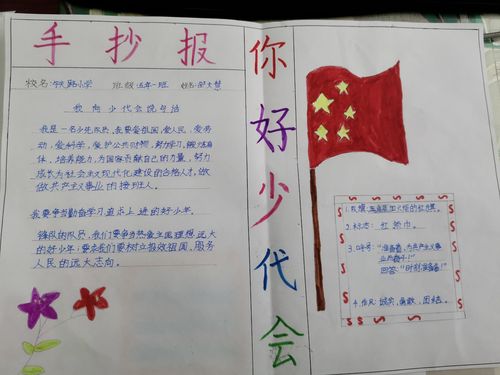 手抄报
校名: 铁路小学 班级: 五年一班 姓名:
我向少代会说句话
我是一名少先队员,我要爱祖国,爱人民,爱劳
动,爱科学,爱护公共财物,努力学习,锻炼身
体,培养能力,为国家贡献自己的力量,努力
成长为社会主义现代化建设的合格人才,做
做共产主义事业的接班人。
我要争当勤奋学习追求上进的好少年。
锋队的队员,我们要争当热爱祖国理想远大
的好少年;要求我们要树立报效祖国、服务
人民的远大志向。
你好少代会
1.队旗:五角星加火炬的红旗。
2.标志: 红领巾。
3.口号:"准备着,为共产主义事
业而奋斗!"
回答:"时刻准备着!"
4.作风:诚实,勇敢,团结。